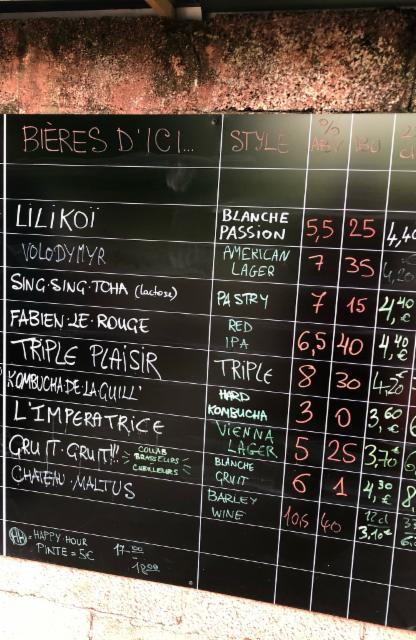 BIÈRES D'ICI... STYLE % ABV IBU
LILIKOÏ BLANCHE PASSION 5,5 25 4,40
VOLODYMYR AMERICAN LAGER 7 35
SING·SING·TCHA (lactose) PASTRY 7 15 4,40 €
FABIEN·LE·ROUGE RED IPA 6,5 40 4,40 €
TRIPLE PLAISIR TRIPLE 8 30 4,20
KOMBUCHA DE LA GUILL' HARD KOMBUCHA 3 0 3,60 €
L'IMPERATRICE VIENNA LAGER 5 25 3,70 €
GRUIT·GRUIT!! COLLAB BRASSEURS CUEILLEURS BLANCHE GRUIT 6 1 4,30 €
CHATEAU·MALTUS BARLEY WINE 10,5 40 12cl 3,10€
HH = HAPPY HOUR 17.00
PINTE = 5€ 18.00